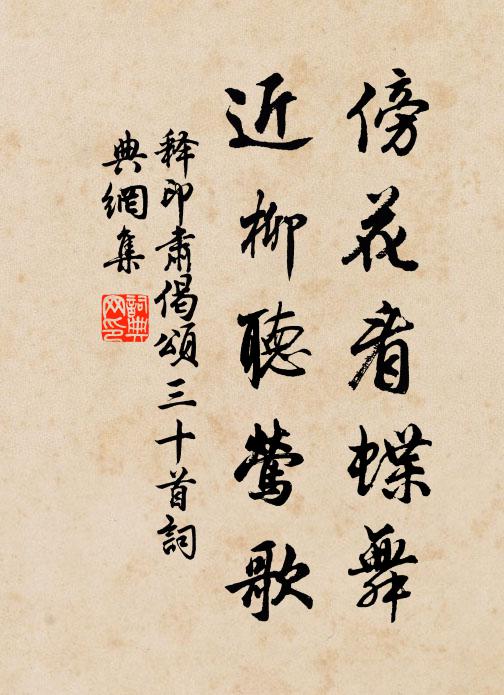 傍花看蝶舞
近柳聽鶯歌
釋印肅偈頌三十首詞
典網集
詞典網印